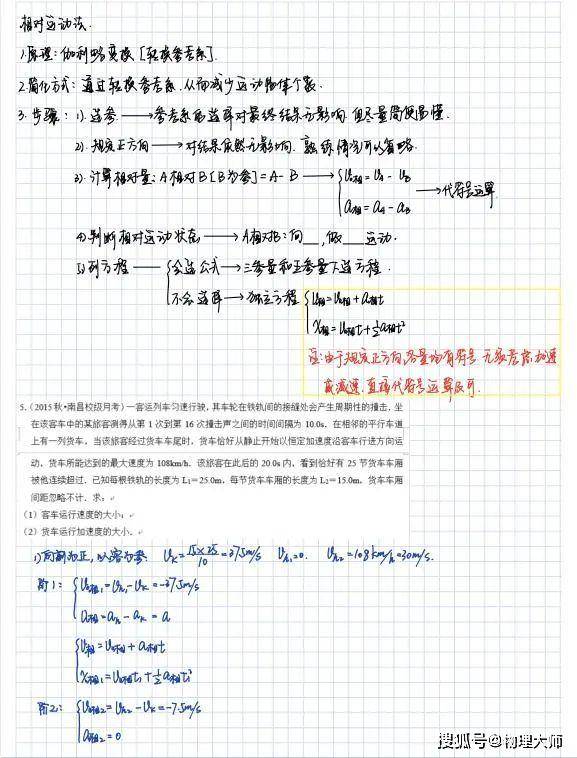 相对运动法.
1.原理:伽利略变换 [转换参考系].
2.简化方式:通过转换参考系,从而减少运动物体个数.
3.步骤:1).选参→参考系的选择对最终结果无影响,但尽量简便易懂.
2).规定正方向→对结果依然无影响.熟练情况可以省略.
3).计算相对量:A相对B[B为参]=A-B→{v相=vA-vB
a相=aA-aB →代符号运算
4)判断相对运动状态→A相对B:向__,做__运动.
5)列方程—{会选公式→三参量和五参量下选方程.
不会选择→独立方程{v相=v0相+a相t
x相=v0相t+½a相t²
注:由于规定正方向,各量均有符号.无须考虑加速
或减速,直接代符号运算即可.
5.(2015秋•南昌校级月考)一客运列车匀速行驶,其车轮在铁轨间的接缝处会产生周期性的撞击,坐
在该客车中的某旅客测得从第1次到第16次撞击声之间的时间间隔为10.0s.在相邻的平行车道
上有一列货车,当该旅客经过货车车尾时,货车恰好从静止开始以恒定加速度沿客车行进方向运
动,货车所能达到的最大速度为108km/h.该旅客在此后的20.0s内,看到恰好有25节货车车厢
被他连续超过.已知每根铁轨的长度为L₁=25.0m,每节货车车厢的长度为L₂=15.0m,货车车厢
间距忽略不计.求:
(1)客车运行速度的大小;
(2)货车运行加速度的大小.
1)向前为正,以客为参: vK=15×25/10=37.5m/s vh1=0. vh2=108km/h=30m/s.
阶1:{v0相1=vh1-vK=-37.5m/s
a相=ah-aK=a
{v相=v0相+a相t
x相1=v0相t1+½a相t1²
阶2:{v0相2=vh2-vK=-7.5m/s
a相2=0
搜狐号@物理大师